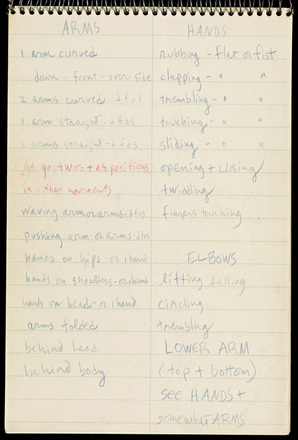 ARMS
1 arm curved
down - front - over - side
2 arms curved - dfos
1 arm straight - dfos
2 arms straight - dfos
gestures + as positions
in other movements
waving arm or arms - dfos
pushing arm or arms - dfos
hands on hips - or 1 hand
hands on shoulders - or 1 hand
hands on head - or 1 hand
arms folded
behind head
behind body
HANDS
rubbing - flat or fist
clapping - " "
trembling - "
touching - "
sliding - " "
opening + closing
twiddling
fingers touching
ELBOWS
lifting falling
circling
trembling
LOWER ARM
(top + bottom)
see HANDS +
somewhat ARMS